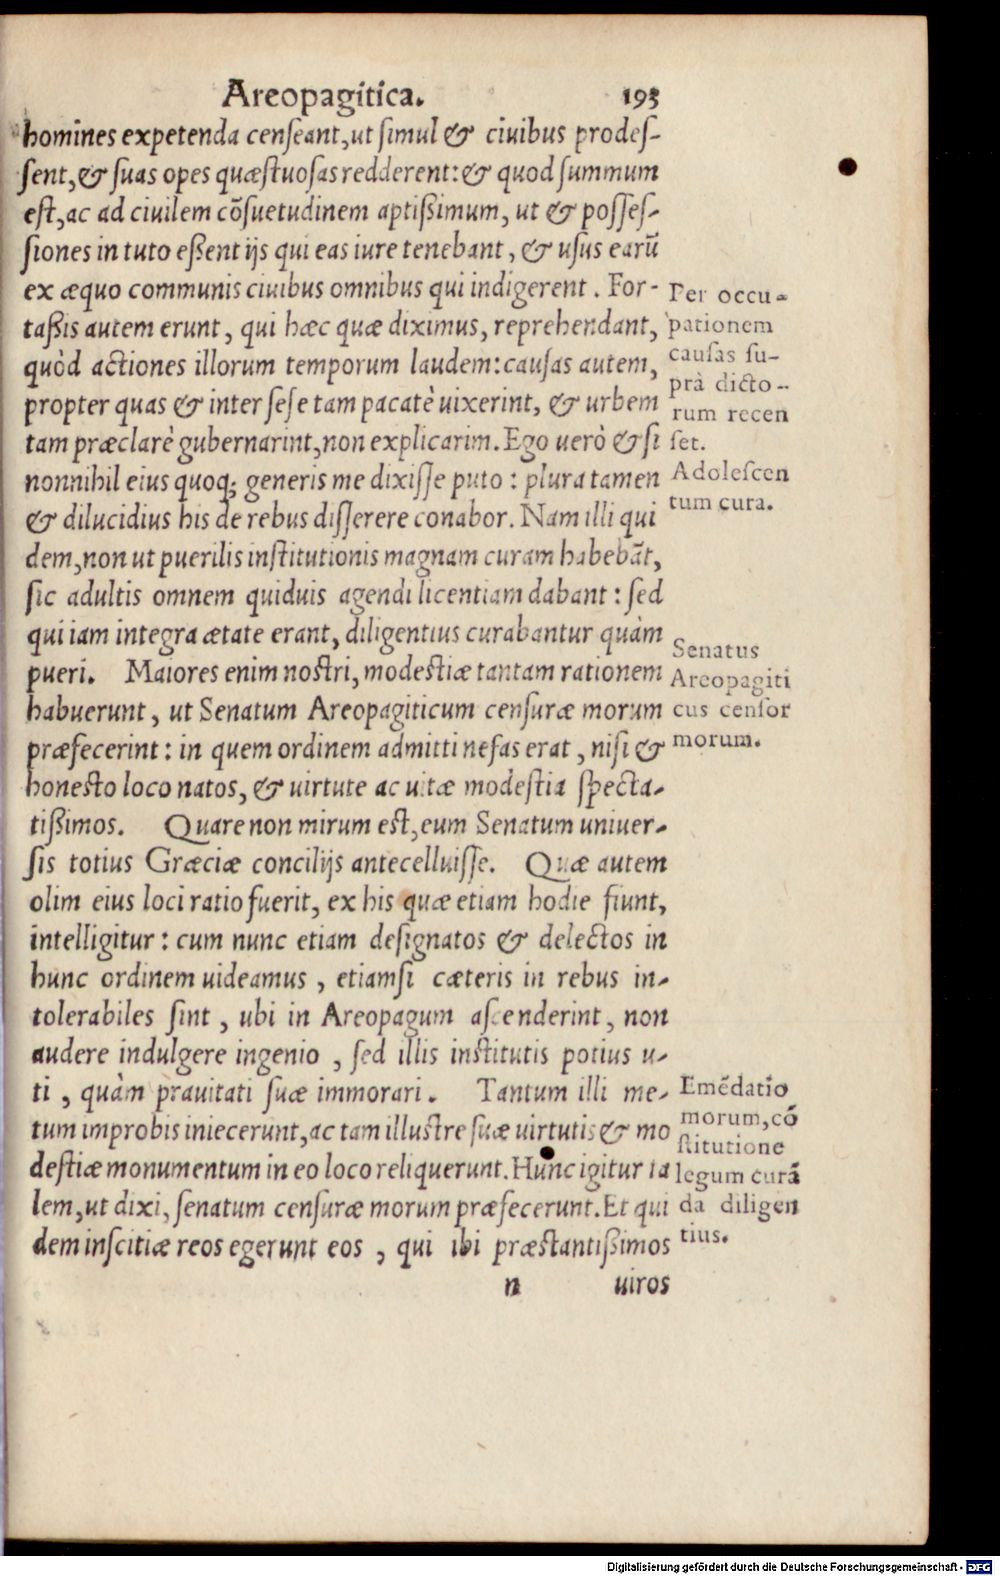 Areopagitica. 193
homines expetenda censeant, ut simul & ciuibus prodes-
sent, & suas opes quæstuosas redderent: & quod summum
est, ac ad ciuilem cōsuetudinem aptißimum, ut & posses-
siones in tuto eßent ijs qui eas iure tenebant, & usus earū
ex æquo communis ciuibus omnibus qui indigerent. For-
taßis autem erunt, qui hæc quæ diximus, reprehendant,
quòd actiones illorum temporum laudem: causas autem,
propter quas & inter sese tam pacatè uixerint, & urbem
tam præclarè gubernarint, non explicarim. Ego uerò & si
nonnihil eius quoq; generis me dixisse puto: plura tamen
& dilucidius his de rebus disserere conabor. Nam illi qui
dem, non ut puerilis institutionis magnam curam habebāt,
sic adultis omnem quiduis agendi licentiam dabant: sed
qui iam integra ætate erant, diligentius curabantur quàm
pueri. Maiores enim nostri, modestiæ tantam rationem
habuerunt, ut Senatum Areopagiticum censuræ morum
præfecerint: in quem ordinem admitti nefas erat, nisi &
honesto loco natos, & uirtute ac uitæ modestia specta-
tißimos. Quare non mirum est, eum Senatum uniuer-
sis totius Græciæ concilijs antecelluisse. Quæ autem
olim eius loci ratio fuerit, ex his quæ etiam hodie fiunt,
intelligitur: cum nunc etiam designatos & delectos in
hunc ordinem uideamus, etiamsi cæteris in rebus in-
tolerabiles sint, ubi in Areopagum ascenderint, non
audere indulgere ingenio, sed illis institutis potius u-
ti, quàm prauitati suæ immorari. Tantum illi me-
tum improbis iniecerunt, ac tam illustre suæ uirtutis & mo
destiæ monumentum in eo loco reliquerunt. Hunc igitur ta
lem, ut dixi, senatum censuræ morum præfecerunt. Et qui
dem inscitiæ reos egerunt eos, qui ibi præstantißimos
n uiros
Per occu-
pationem
causas su-
prà dicto-
rum recen
set.
Adolescen
tum cura.
Senatus
Areopagiti
cus censor
morum.
Emēdatio
morum, cō
stitutione
legum curā
da diligen
tius.
Digitalisierung gefördert durch die Deutsche Forschungsgemeinschaft - DFG